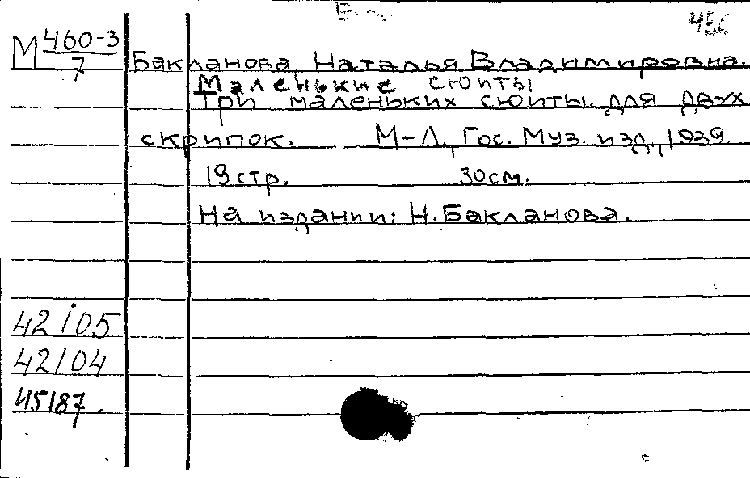 М 460-3
7
Бакланова, Наталья Владимировна.
Маленькие сюиты
Три маленьких сюиты для двух
скрипок. М-Л, Гос. Муз. изд., 1939
19 стр. 30 см.
На издании: Н. Бакланова.
42105
42104
45187.